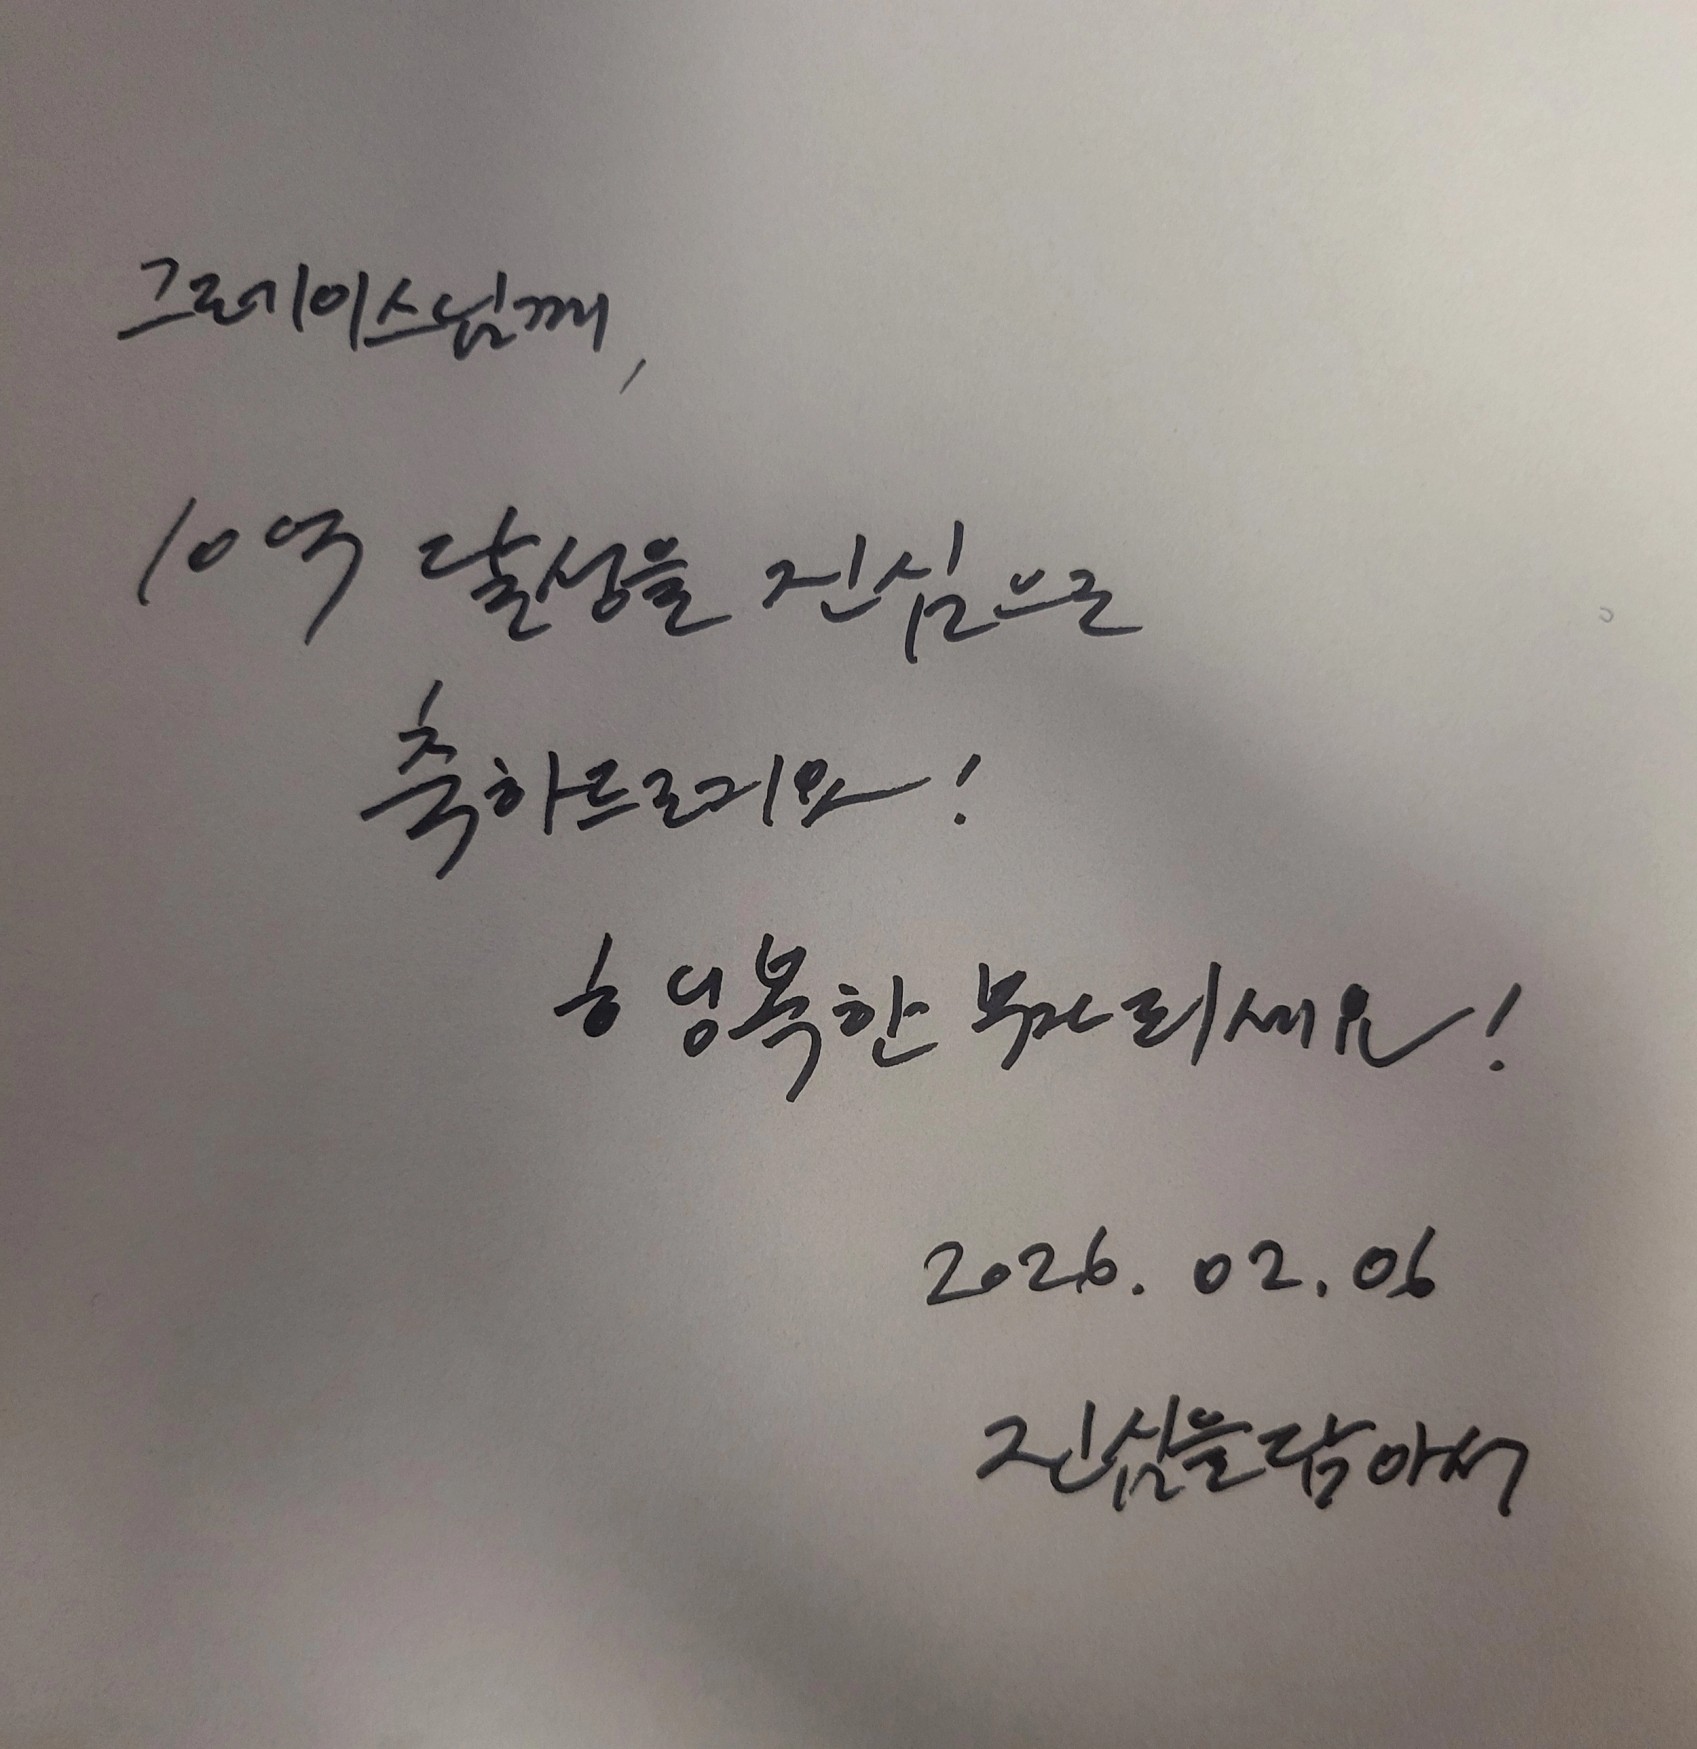 그레이스님께,
10억 달성을 진심으로
축하드려요!
행복한 부자 되세요!
2026. 02. 06
진심을담아서